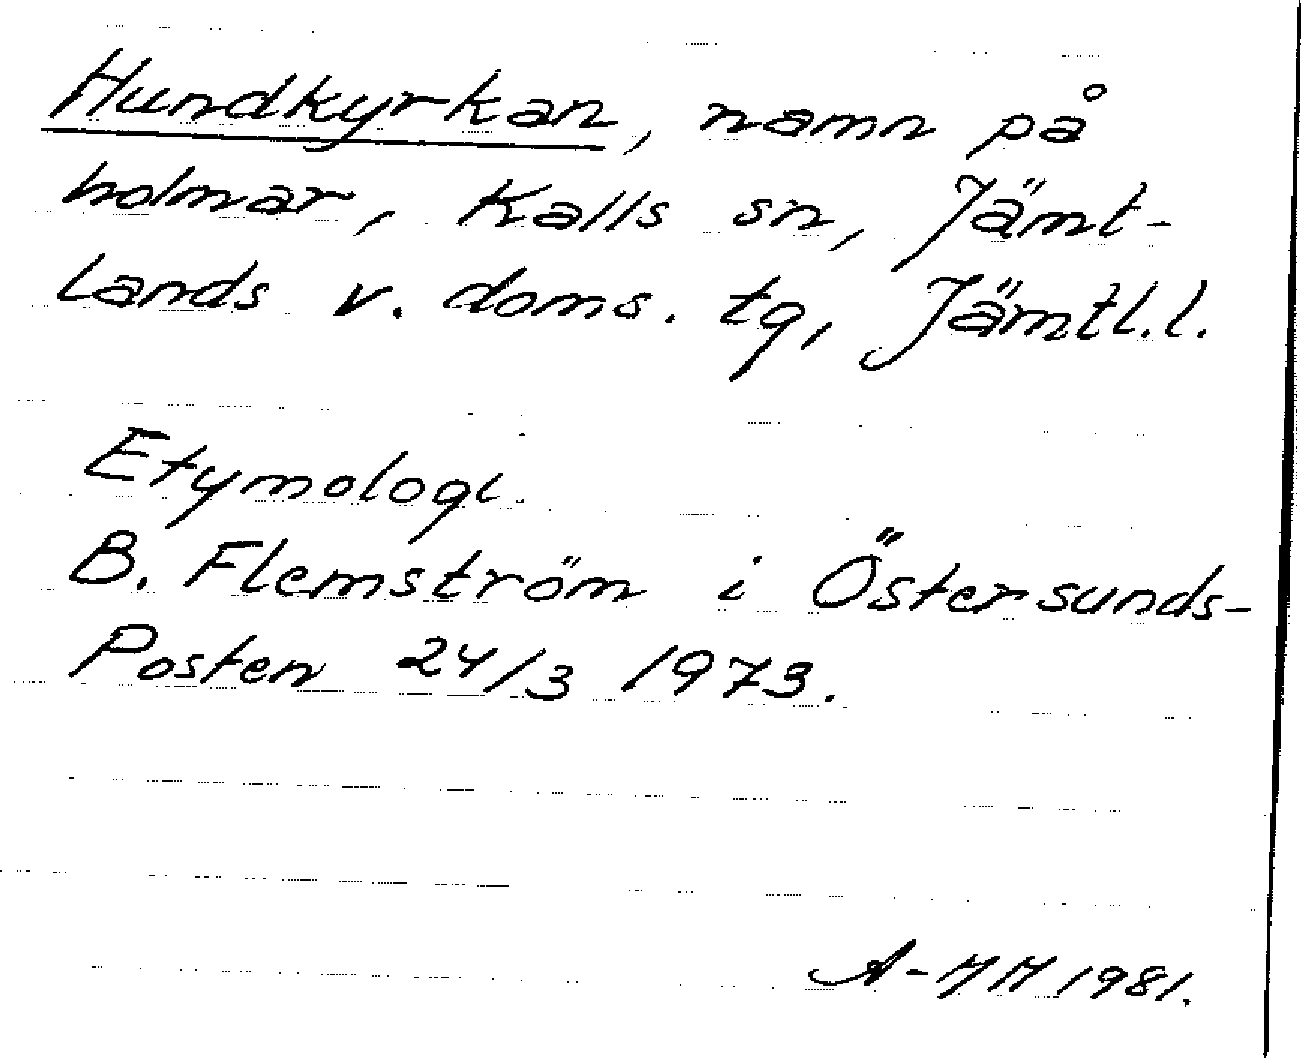 Hundkyrkan, namn på
holmar, Kalls sn, Jämt-
lands v. doms. tg, Jämtl.l.
Etymologi.
B. Flemström i Östersunds-
Posten 24/3 1973.
1981.